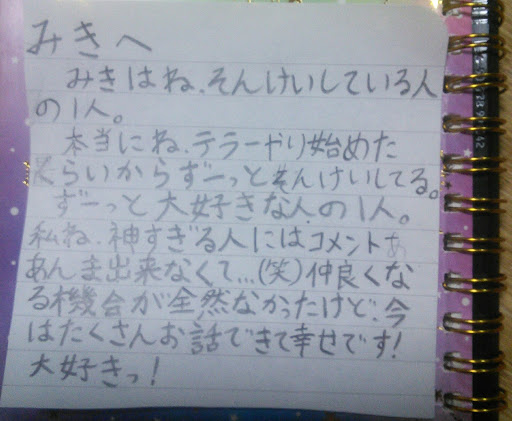 みきへ
みきはね、そんけいしている人
の1人。
本当にね、テラーやり始めた
くらいからずーっとそんけいしてる。
ずーっと大好きな人の1人。
私ね、神すぎる人にはコメントあ
あんま出来なくて…(笑)仲良くな
る機会が全然なかったけど、今
はたくさんお話できて幸せです!
大好きっ!